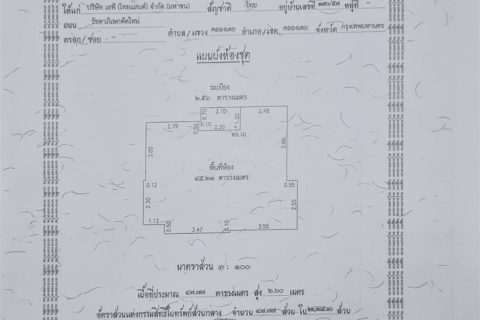 ให้แก่ บริษัท เอพี (ไทยแลนด์) จำกัด (มหาชน) สัญชาติ ไทย อยู่บ้านเลขที่ หมู่ที่ -
ถนน รัชดาภิเษกตัดใหม่ ตำบล/แขวง คลองเตย อำเภอ/เขต คลองเตย จังหวัด กรุงเทพมหานคร
ตรอก/ซอย -
แผนผังห้องชุด
ระเบียง
๒.๕๖ ตารางเมตร
0.70 2.10 2.45
2.79 0.30 0.10 2.20 1.20
0.10
3.05 3.88
พื้นที่ห้อง
๔๕.๒๑ ตารางเมตร
0.12 0.55
2.30 2.55
1.12 0.50 3.47 0.10 3.55
มาตราส่วน ๑ : ๑๐๐
เนื้อที่ประมาณ ๔๗.๗๗ ตารางเมตร สูง ๒.๖๐ เมตร
อัตราส่วนแห่งกรรมสิทธิ์ในทรัพย์ส่วนกลาง จำนวน ๔๗.๗๗ ส่วน ใน ส่วน